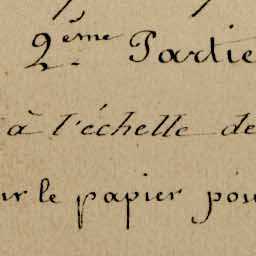 2.ème Partie
à l'échelle de
le papier